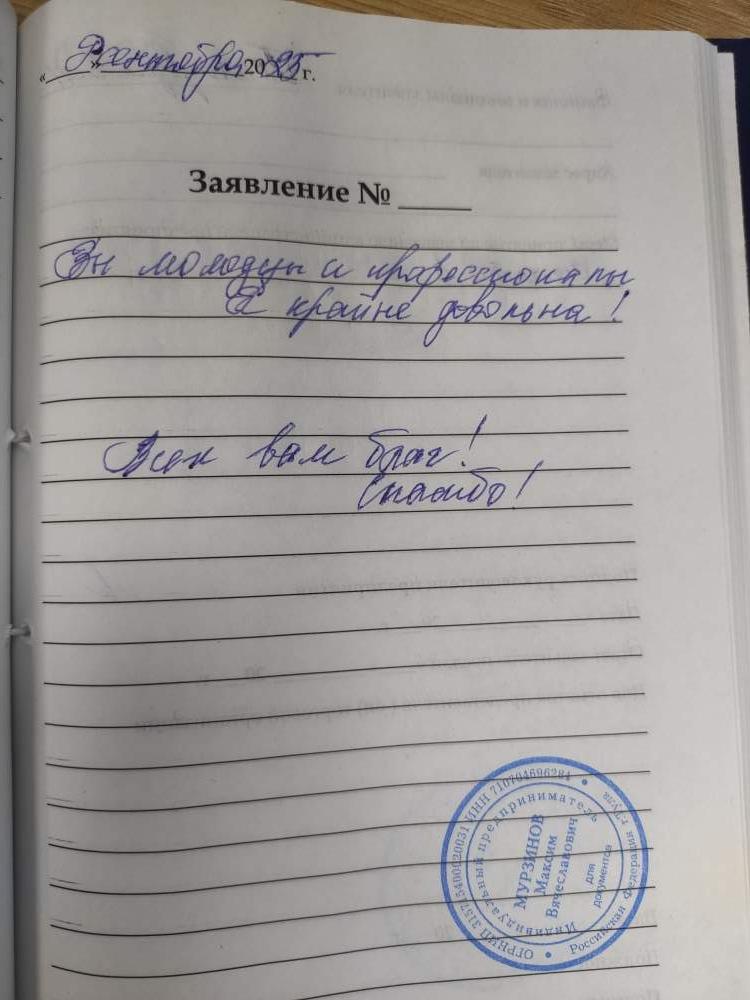 « 9 » сентября 2025 г.
Заявление № ____
Вы молодцы и профессионалы
Я крайне довольна!
Всех вам благ!
Спасибо!
ОГРНИП 315715400020031 ИНН 710704696284
Российская Федерация г.Тула
Индивидуальный предприниматель
МУРЗИНОВ
Максим
Вячеславович
для
документов